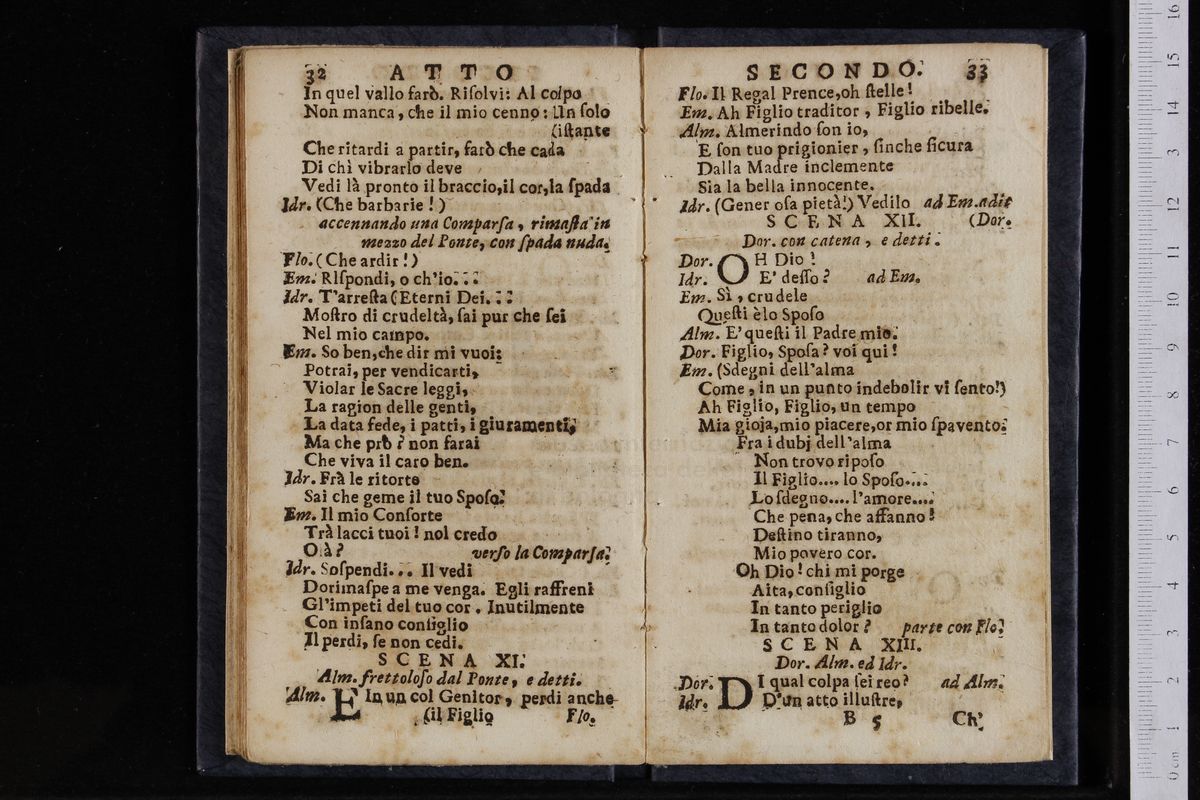 32 ATTO
In quel vallo farò. Riſolvi: Al colpo
Non manca, che il mio cenno: Un ſolo
(iſtante
Che ritardi a partir, farò che cada
Di chi vibrarlo deve
Vedi là pronto il braccio,il cor,la ſpada
Idr. (Che barbarie!)
accennando una Comparſa, rimaſta in
mezzo del Ponte, con ſpada nuda.
Flo. (Che ardir!)
Em. RIſpondi, o ch'io...
Idr. T'arreſta (Eterni Dei...
Moſtro di crudeltà, ſai pur che ſei
Nel mio campo.
Em. So ben,che dir mi vuoi:
Potrai, per vendicarti,
Violar le Sacre leggi,
La ragion delle genti,
La data fede, i patti, i giuramenti,
Ma che prò? non farai
Che viva il caro ben.
Idr. Frà le ritorte
Sai che geme il tuo Spoſo.
Em. Il mio Conſorte
Trà lacci tuoi! nol credo
Olà? verſo la Comparſa.
Idr. Soſpendi... Il vedi
Dorimaſpe a me venga. Egli raffreni
Gl'impeti del tuo cor. Inutilmente
Con inſano conſiglio
Il perdi, ſe non cedi.
SCENA XI.
Alm. frettoloſo dal Ponte, e detti.
Alm. E In un col Genitor, perdi anche
(il Figlio Flo.
SECONDO. 33
Flo. Il Regal Prence,oh ſtelle!
Em. Ah Figlio traditor, Figlio ribelle.
Alm. Almerindo ſon io,
E ſon tuo prigionier, ſinche ſicura
Dalla Madre inclemente
Sia la bella innocente.
Idr. (Gener oſa pietà!) Vedilo ad Em.adit
SCENA XII. (Dor.
Dor. con catena, e detti.
Dor. OH Dio!
Idr. E' deſſo? ad Em.
Em. Sì, crudele
Queſti èlo Spoſo
Alm. E' queſti il Padre mio.
Dor. Figlio, Spoſa? voi qui!
Em. (Sdegni dell'alma
Come, in un punto indebolir vi ſento!)
Ah Figlio, Figlio, un tempo
Mia gioja,mio piacere,or mio ſpavento.
Fra i dubj dell'alma
Non trovo ripoſo
Il Figlio.... lo Spoſo....
Lo ſdegno.... l'amore....
Che pena, che affanno!
Deſtino tiranno,
Mio povero cor.
Oh Dio! chi mi porge
Aita, conſiglio
In tanto periglio
In tanto dolor? parte con Flo.
SCENA XIII.
Dor. Alm. ed Idr.
Dor. DI qual colpa ſei reo? ad Alm.
Idr. D'un atto illuſtre,
B 5 Ch'
0 cm 1 2 3 4 5 6 7 8 9 10 11 12 13 14 15 16